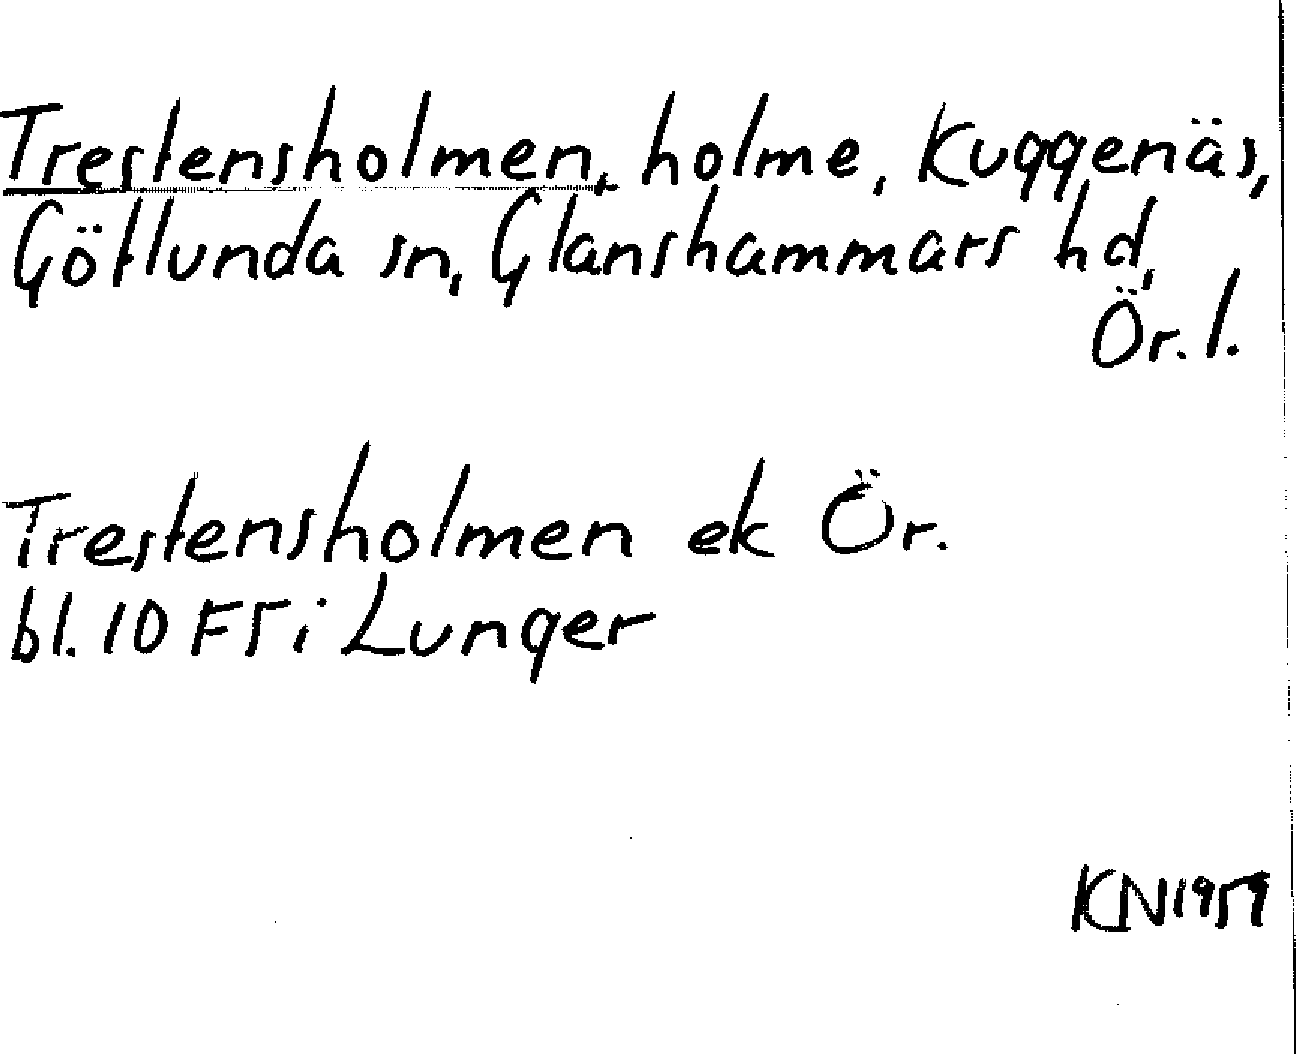 Trestensholmen, holme, Kuggenäs,
Götlunda sn, Glanshammars hd,
Ör. l.
Trestensholmen ek Ör.
bl. 10 F5 i Lunger
KN 1959